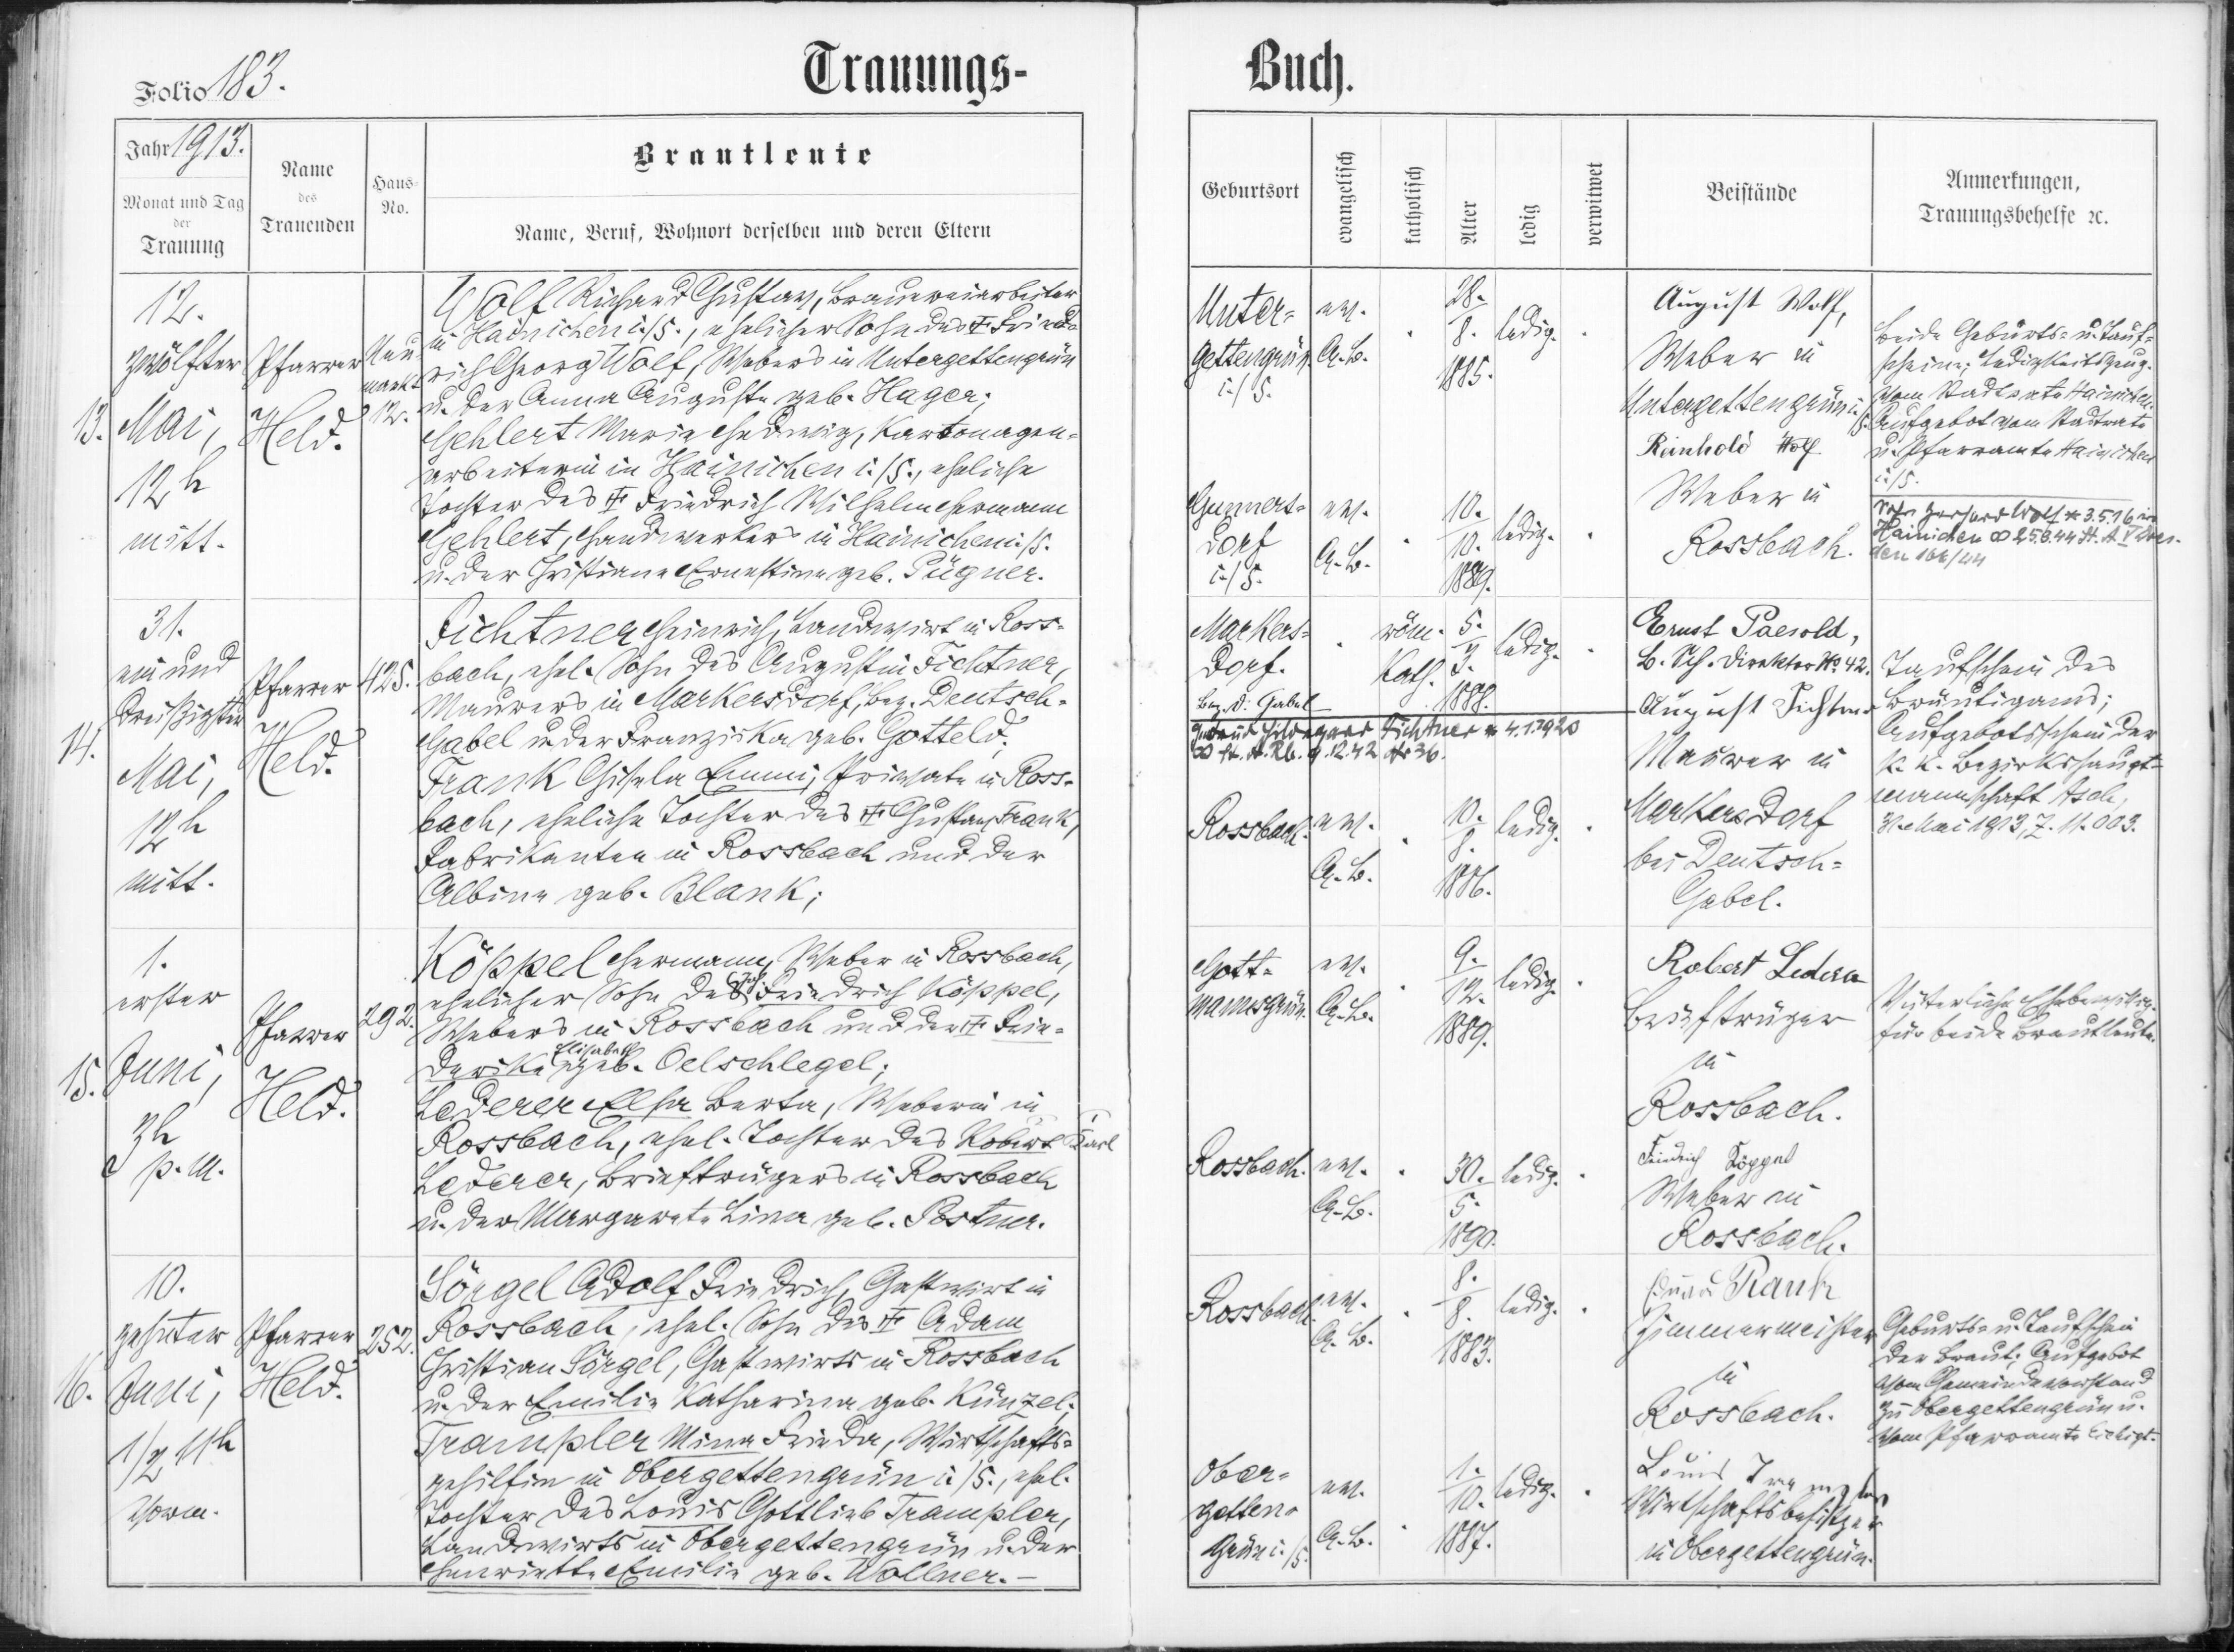 Folio 183.
Trauungs-
Buch.
Jahr 1913.
Monat und Tag
der
Trauung
Name
des
Trauenden
Haus-
No.
Brautleute
Name, Beruf, Wohnort derselben und deren Eltern
Geburtsort
evangelisch
katholisch
Alter
ledig
verwitwet
Beistände
Anmerkungen,
Trauungsbehelfe ꝛc.
13.
12.
zwölfter
Mai,
12 h
mitt.
Pfarrer
Held.
Neu-
markt
12.
Wolf Richard Gustav, Brauereiarbeiter
in Hainichen i./S., ehelicher Sohn des † Fried-
rich Georg Wolf, Webers in Untergettengrün
u. der Anna Auguste geb. Hager;
Gehlert Marie Hedwig, Kartonagen-
arbeiterin in Hainichen i./S., eheliche
Tochter des † Friedrich Wilhelm Hermann
Gehlert, Handwerkers in Hainichen i./S.
u. der Christiane Ernestine geb. Pügner.
Unter-
gettengrün
i./S.
ev.
A.B.
28.
8.
1885.
ledig.
Gunners-
dorf
i./S.
ev.
A.B.
10.
10.
1889.
ledig.
August Wolf,
Weber in
Untergettengrün i./S.
Reinhold Wolf
Weber in
Rossbach.
Beide Geburts- u. Tauf-
scheine; Ledigkeitszeug.
vom Stadtrate Hainichen.
Aufgebot vom Stadtrate
u. Pfarramte Hainichen
i./S.
Sohn Gerhard Wolf * 3.5.16 in
Hainichen ∞ 25.8.44 St. A V Dres-
den 168/44
14.
31.
ein und
dreißigster
Mai,
12 h
mitt.
Pfarrer
Held.
425.
Fichtner Heinrich, Landwirt in Ross-
bach, ehel. Sohn des Augustin Fichtner,
Maurers in Markersdorf, Bez. Deutsch-
Gabel u. der Franziska geb. Gotteld;
Frank Gisela Emmi, Private in Ross-
bach, eheliche Tochter des † Gustav Frank,
Fabrikanten in Rossbach und der
Albine geb. Blank;
Markers-
dorf.
Bez. D. Gabel
röm.
kath.
5.
3.
1888.
ledig.
Gertrud Hildegard Fichtner * 4.1.1920
∞ St. A. Rb. 9.12.42 Nr 36.
Rossbach.
ev.
A.B.
10.
8.
1886.
ledig.
Ernst Paesold,
B. Sch. Direktor No 42.
August Fichtner
Maurer in
Markersdorf
bei Deutsch-
Gabel.
Taufschein des
Bräutigams;
Aufgebotsschein der
k. k. Bezirkshaupt-
mannschaft Asch,
31. Mai 1913, Z. 11.003.
15.
1.
erster
Juni,
3h
p.m.
Pfarrer
Held.
292.
Köppel Hermann, Weber in Rossbach,
ehelicher Sohn des Joh. Friedrich Köppel,
Webers in Rossbach und der † Frie-
derike Elisabeth geb. Oelschlegel;
Lederer Elsa Berta, Weberin in
Rossbach, ehel. Tochter des Robert Karl
Lederer, Briefträgers in Rossbach
u. der Margarete Lina geb. Postner.
Gott-
mannsgrün.
ev.
A.B.
9.
12.
1889.
ledig.
Rossbach.
ev.
A.B.
30.
5.
1890.
ledig.
Robert Lederer
Briefträger
in
Rossbach.
Friedrich Köppel
Weber in
Rossbach.
Väterliche Ehebewillig.
für beide Brautleute.
16.
10.
zehnter
Juni,
1/2 11h
vorm.
Pfarrer
Held.
252.
Sörgel Adolf Friedrich, Gastwirt in
Rossbach, ehel. Sohn des † Adam
Christian Sörgel, Gastwirts in Rossbach
u. der Emilie Katharina geb. Künzel;
Trampler Mina Frieda, Wirtschafts-
gehilfin in Obergettengrün i./S., ehel.
Tochter des Louis Gottlieb Trampler,
Landwirts in Obergettengrün u. der
Henriette Emilie geb. Wollner.-
Rossbach.
ev.
A.B.
8.
8.
1883.
ledig.
Ober-
getten-
grün i./S.
ev.
A.B.
1.
10.
1887.
ledig.
Rank
Zimmermeister
in
Rossbach.
Louis Trampler
Wirtschaftsbesitzer
in Obergettengrün.
Geburts- u. Taufschein
der Braut; Aufgebot
vom Gemeindevorstand
zu Obergettengrün u.
vom Pfarramte Eichigt.